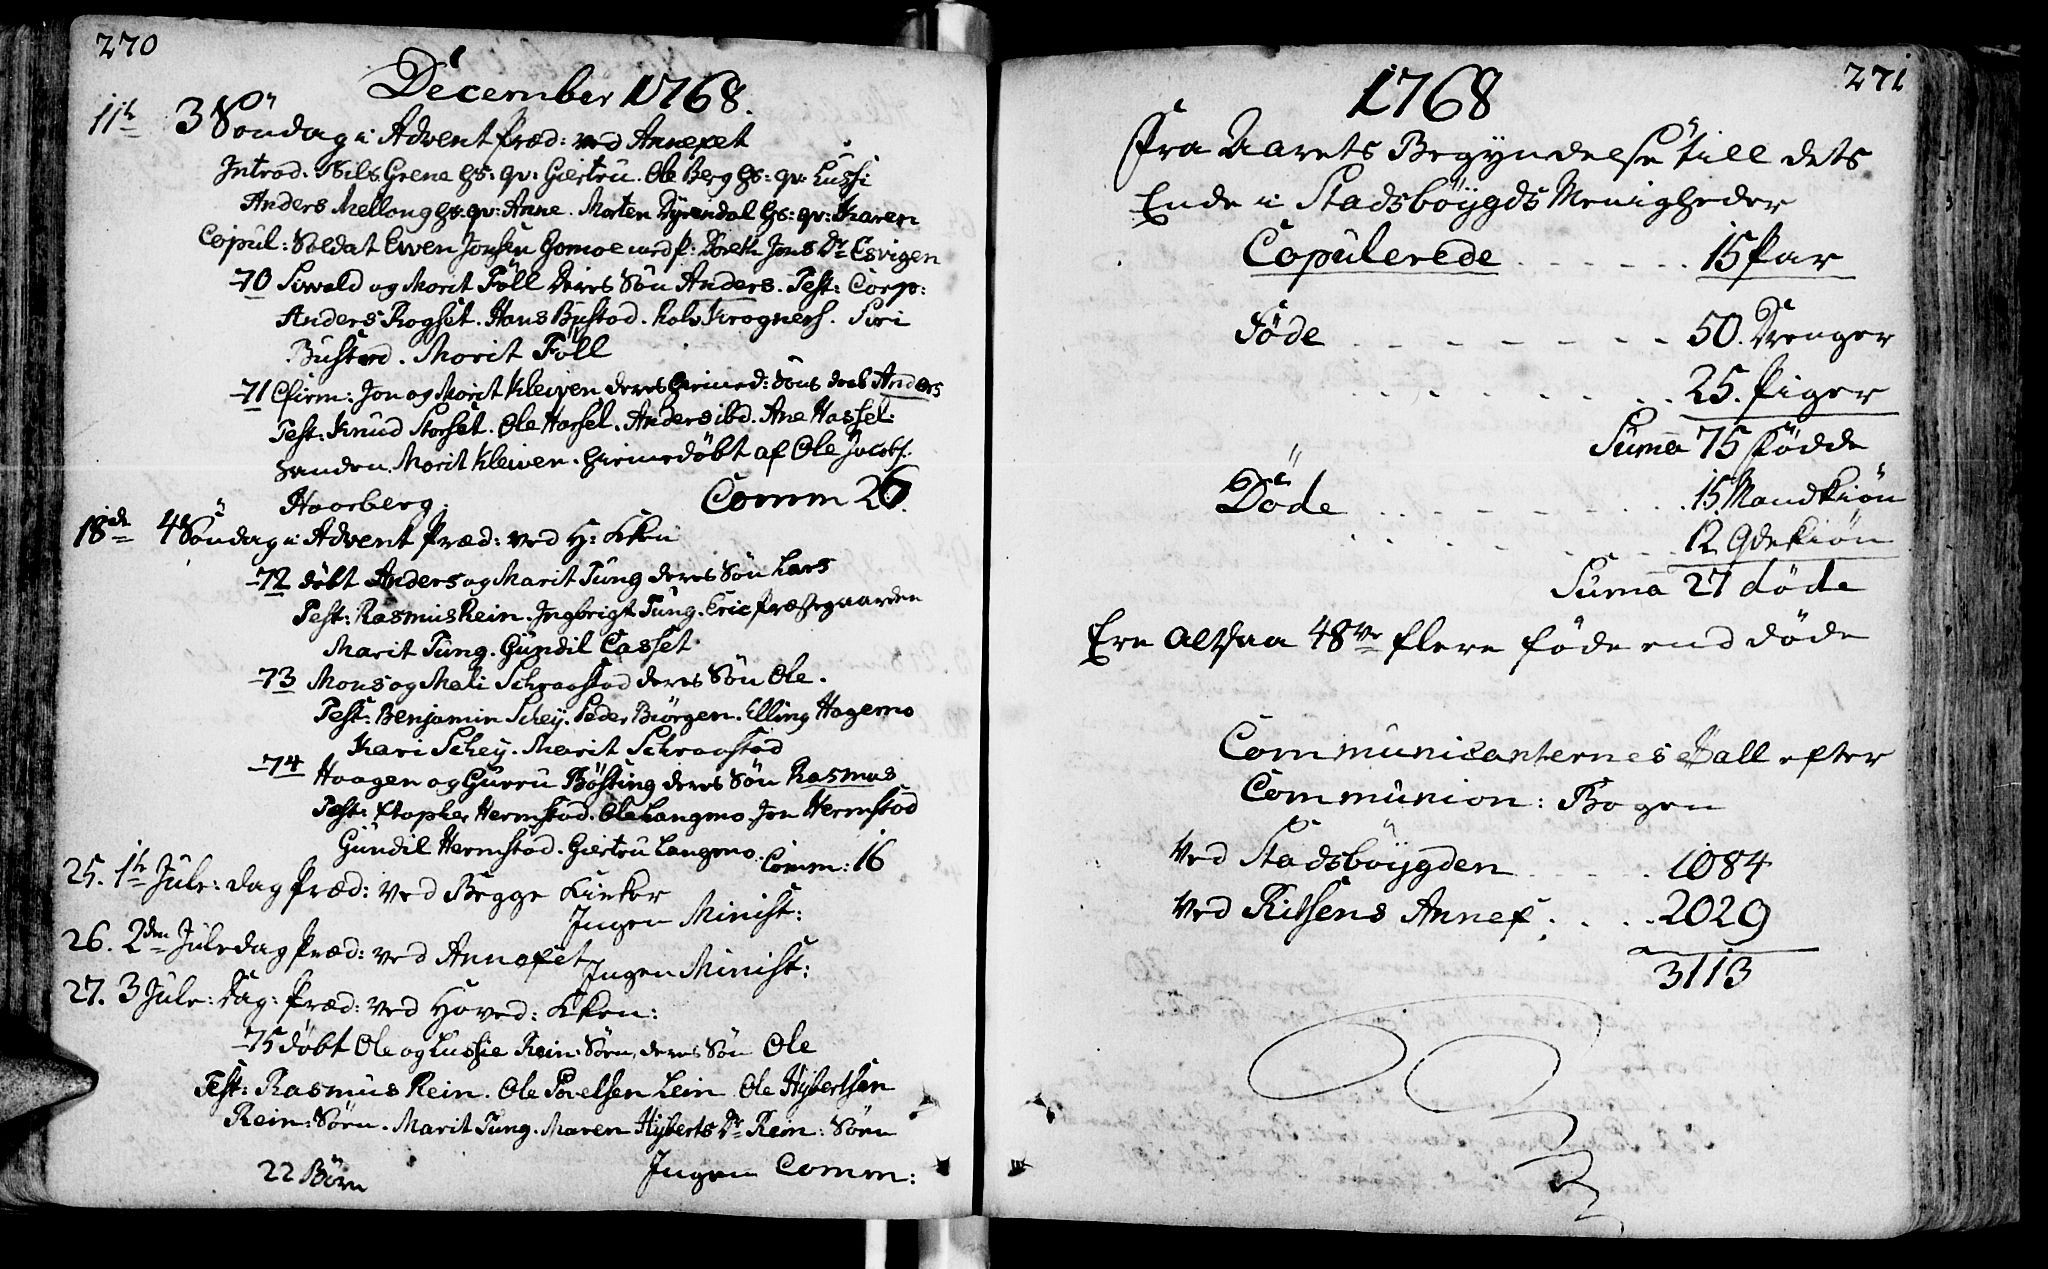 270
December 1768.
11te 3 Söndag i Advent Præd: ved Annexet
Introd. Nils Grene Hs: qv: Giertru. Ole Berg Hs: qv: Lussi
Anders Mellong Hs: qv: Anne. Morten Dyrendal Hs: qv: Karen
Copul: Soldat Ewen Jonsen Gomoe med p: Doreth Jons Dr Esvigen
-70 Siwald og Morit Föll deres Sön Anders. Test: Corp:
Anders Rogset. Hans Bustad. Rolv Krogness. Siri
Bustad. Morit Föll
-71 Cfirm: Jon og Morit Kleiven deres hiemed: Söns dreb Anders
Test: Knud Storset. Ole Hassel. Anders ibd. Ane Hassel.
sanden. Morit Kleiven. hiemedöbt af Ole Jacobs.
Haarberg. Comm 26.
18de 4 Söndag i Advent Præd: ved H: Kken
-72 döbt Anders og Marit Tung deres Sön Lars
Test: Rasmus Rein. Ingbrigt Tung. Eric Præstegaarden
Marit Tung. Gundil Casset
-73 Mons og Mali Schraastad deres Sön Ole.
Test: Benjamin Schey. Peder Biörgen. Elling Hagemo
Kari Schey. Marit Schraastad
-74 Haagen og Gurru Bösting deres Sön Rasmus
Test: Xtopher Hermstad. Ole Langmo. Jon Hermstad
Gundil Hermstad. Giertru Langmo. Comm: 16
25. 1te Jule: dag Præd: ved Begge Kirker
Ingen Minist:
26. 2den Juledag Præd: ved Annexet
Ingen Minist:
27. 3 Jule: Dag: Præd: ved Hoved: Kken:
-75 döbt Ole og Lussie Rein: Sörn, deres Sön Ole
Test: Rasmus Rein. Ole Povelsen Lein. Ole Hybertsen
Rein: Sörn. Marit Tung. Maren Hyberts Dr Rein: Sörn
22 Börn Ingen Comm:
1768
271
Fra Aarets Begyndelse till dets
Ende i Stadsböygds Menigheder
Copulerede . . . . . . 15 Par
Föde . . . . . . 50. Drenger
. . . . . . 25. Piger
Suma 75 födde
Döde . . . . . . 15 Mandkiön
. . . . . . 12 Qdekiön
Suma 27 döde
Ere altsaa 48ve flere föde end döde
Communicanternes Tall efter
Communion: Bogen
Ved Stadsböygden . . . . . 1084
Ved Ritsens Annex: . . . 2029
3113